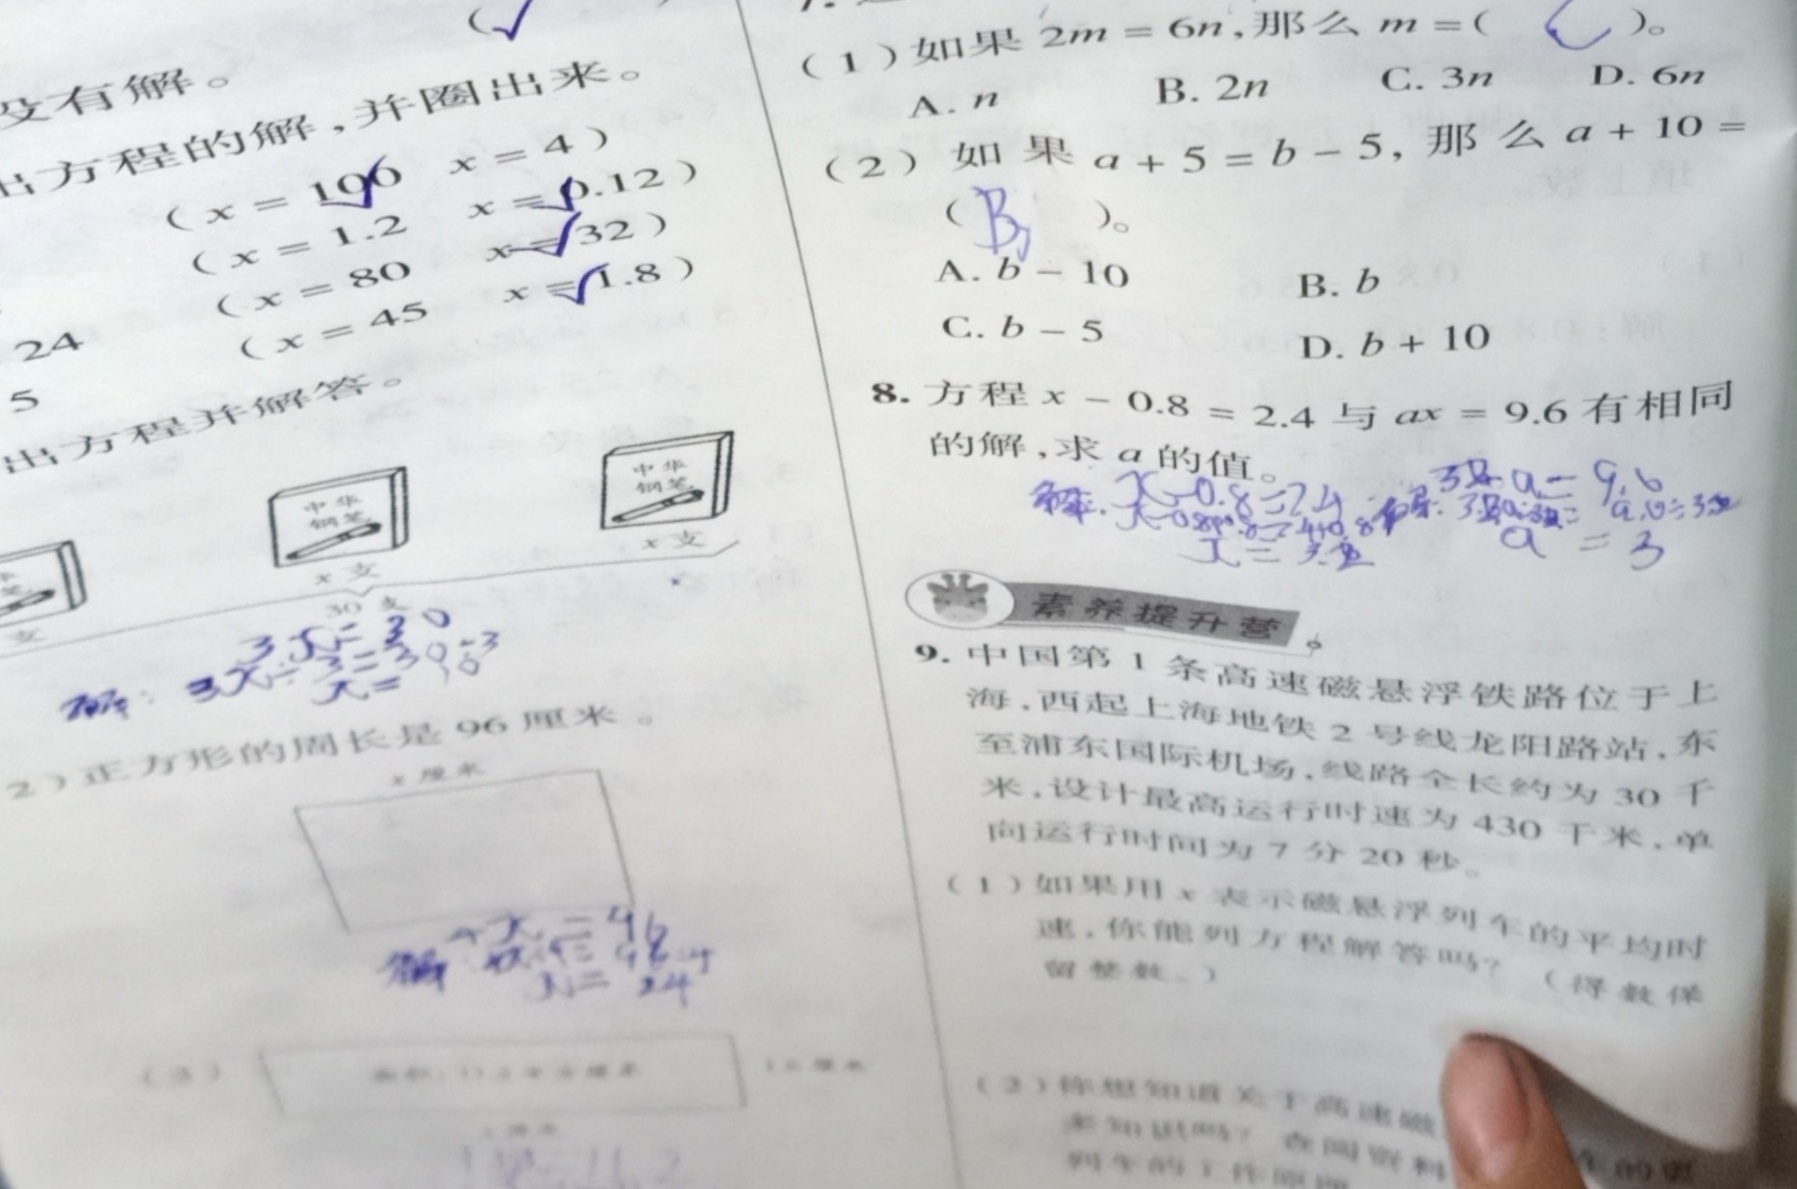 没有解。
出方程的解,并圈出来。
(x = 106 x = 4)
(x = 1.2 x = 0.12)
(x = 80 x = 32)
(x = 45 x = 1.8)
24
5
出方程并解答。
中华
钢笔
中华
钢笔
x 支
x 支
支
30 支
3x = 30
解: 3x÷3=30÷3
x=
2)正方形的周长是 96 厘米。
x 厘米
x = 96
解
x = 24
(3)
(1)如果 2m = 6n,那么 m =( C )。
A. n B. 2n C. 3n D. 6n
(2)如果 a + 5 = b - 5,那么 a + 10 =
( B )。
A. b - 10 B. b
C. b - 5 D. b + 10
8. 方程 x - 0.8 = 2.4 与 ax = 9.6 有相同
的解,求 a 的值。
解: x-0.8=2.4
a = 9.6
a = 3
素养提升营
9. 中国第 1 条高速磁悬浮铁路位于上
海,西起上海地铁 2 号线龙阳路站,东
至浦东国际机场,线路全长约为 30 千
米,设计最高运行时速为 430 千米,单
向运行时间为 7 分 20 秒。
(1)如果用 x 表示磁悬浮列车的平均时
速,你能列方程解答吗?(得数保
留整数。)
(2)你想知道关于高速磁